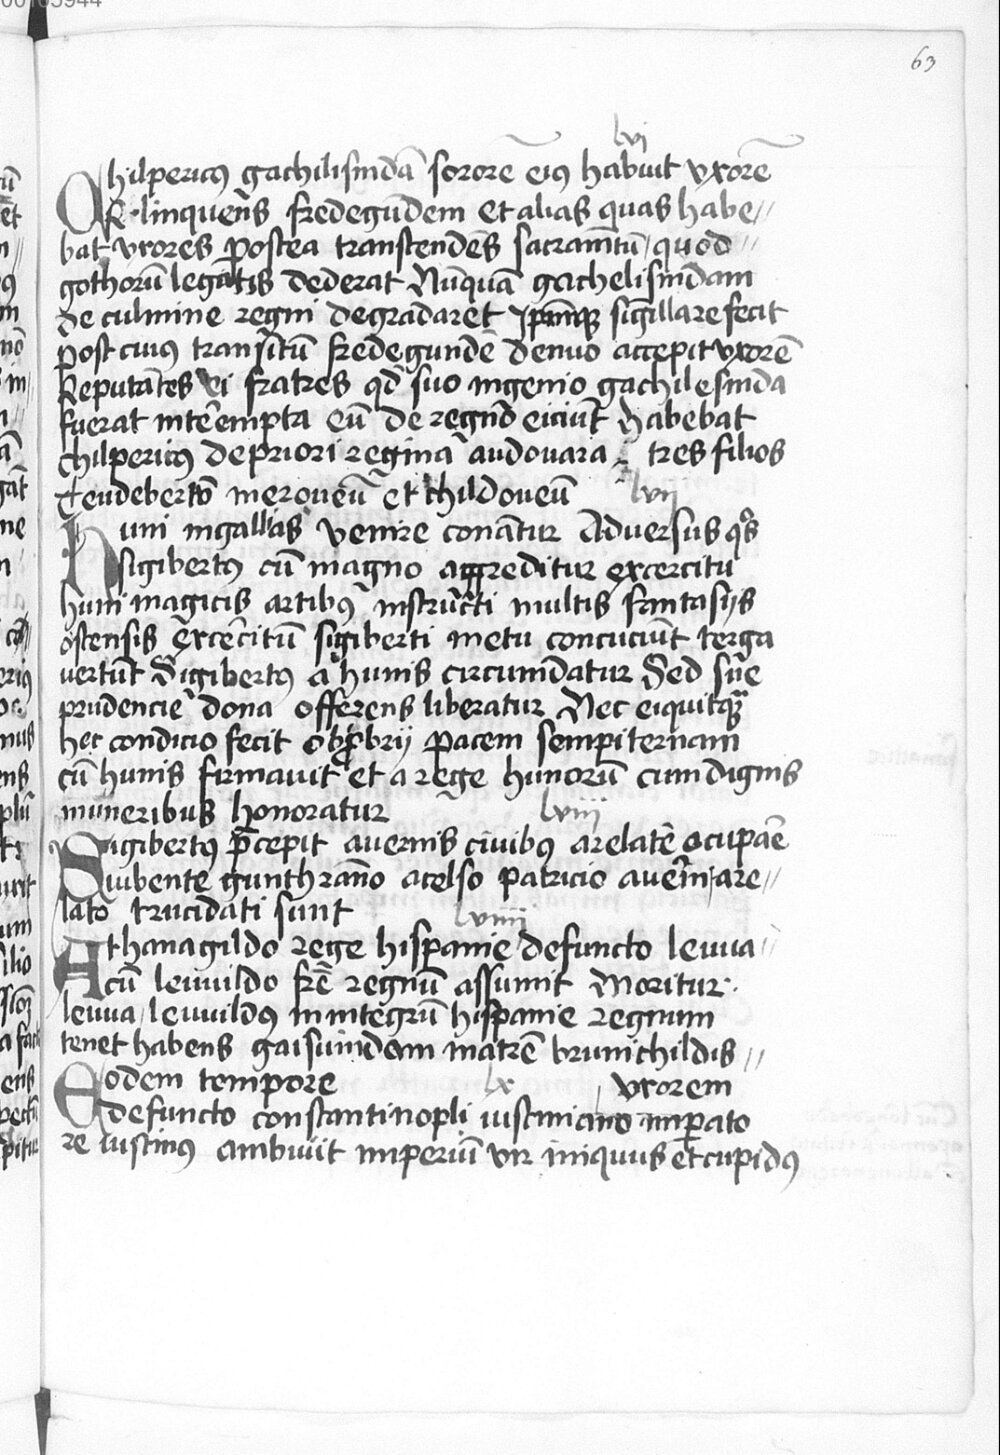 63
lvi
Chilpericꝰ gachilisindā sororē eiꝰ habuit vxorē
Relinquens fredegūdem et alias quas habe//
bat vxores postea transcendēs sacramētū quod
gothorū legatis dederat Nūquā gachelisindam
de culmine regni degradaret Ipamqꝫ sigillare fecit
post cuiꝰ transitū fredegundē denuo accepit vxorē
Reputātes ei fratres qd suo ingenio gachilesinda
fuerat interempta eū de regno eiciūt Habebat
chilpericꝰ de priori regina audouara tres filios
Teudebertō meroueū et childoueū
lvii
Huni in gallias venire conātur Aduersus qs
sigibertꝰ cū magno aggreditur excercitu
huni magicis artibꝰ instructi multis fantasijs
ostensis Exercitū sigiberti metu concuciūt terga
uertūt Sigibertꝰ a hunis circumdatur Sed sue
prudencie dona offerens liberatur Nec eiquitqꝫ
hec condicio fecit obprobrij pacem sempiternam
cū hunis firmauit et a rege hunorū cum dignis
muneribus honoratur
lviii
Sigibertꝰ precepit auernis ciuibꝰ arelatē ocupare
Iubente gunthranno a celso patricio auerni are//
lato trucidati sunt
lviiii
Athanagildo rege hispanie defuncto leuua
cū leuuildo fre regnū assumit Moritur
leuua leuuildꝰ in integrū hispanie regnum
tenet habens gaisuindam matrē brunichildis //
vxorem
lx
Eodem tempore
defuncto constantinopli iustiniano impato
re iustinꝰ ambiuit imperiū vir iniquus et cupidꝰ